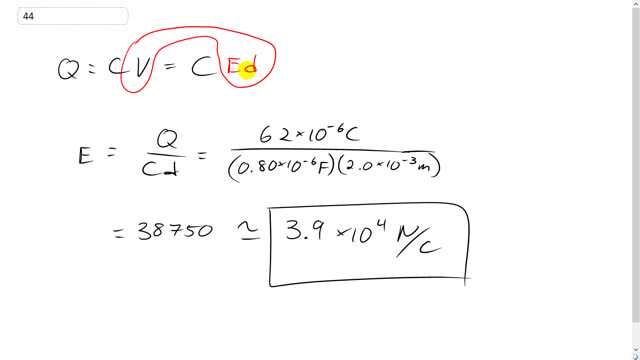 44
Q = CV = C Ed
E = Q / Cd = 62×10⁻⁶C / (0.80×10⁻⁶F)(2.0×10⁻³m)
= 38750 ≃ 3.9 ×10⁴ N/C